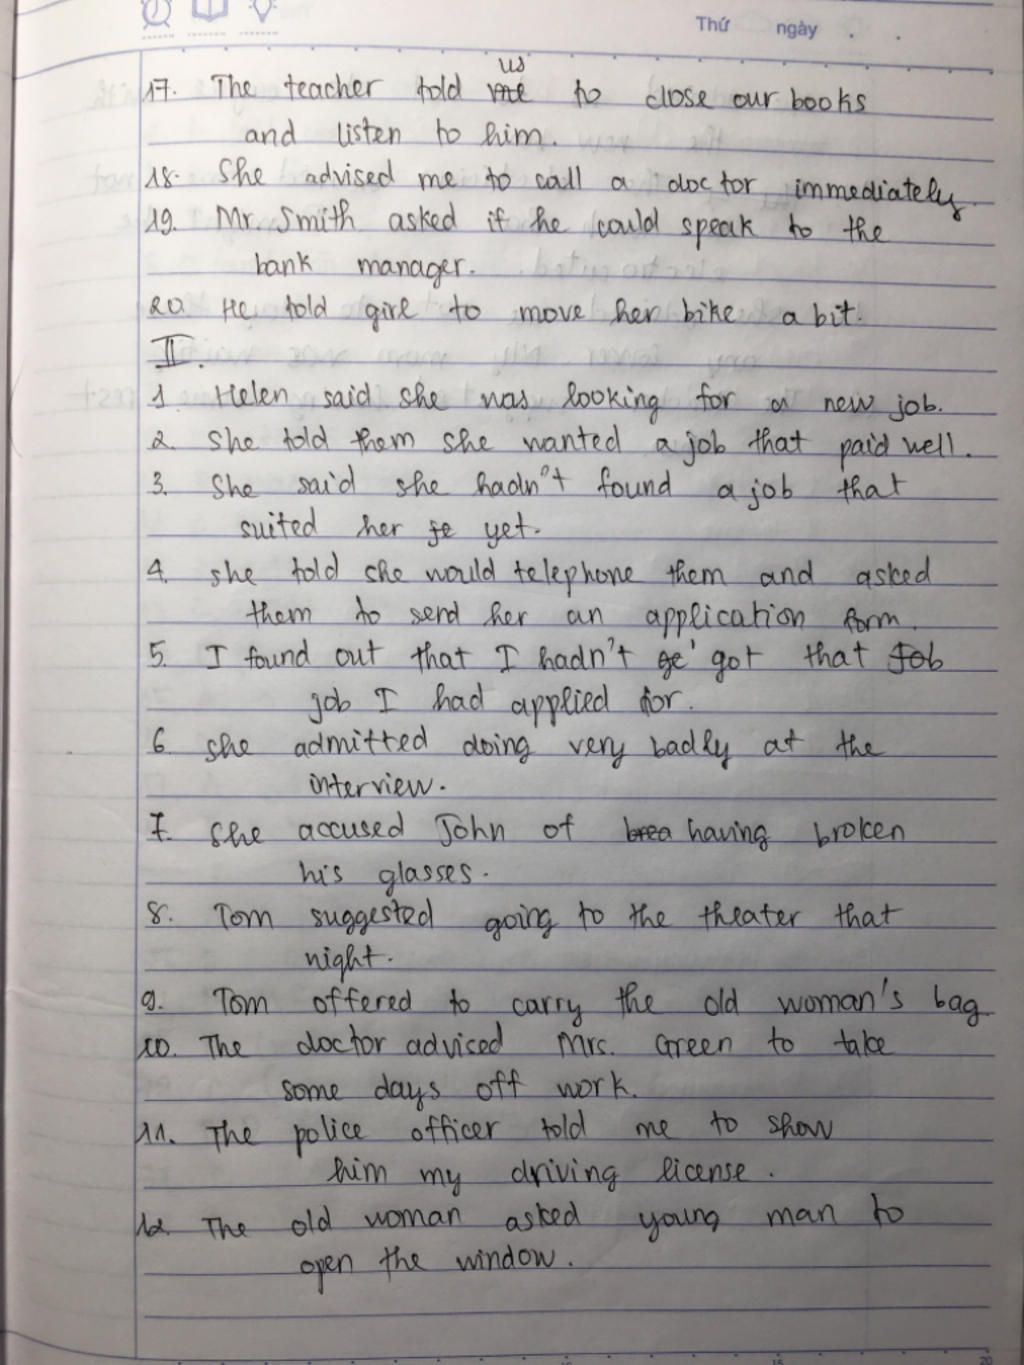 Thứ ngày . .
us
17. The teacher told me to close our books
and listen to him.
18. She advised me to call a doctor immediately
19. Mr. Smith asked if he could speak to the
bank manager.
20 He told girl to move her bike a bit.
II.
1. Helen said she was looking for a new job.
2 She told them she wanted a job that paid well.
3. She said she hadn't found a job that
suited her ye yet.
4. she told she would telephone them and asked
them to send her an application form.
5. I found out that I hadn't ge got that Job
job I had applied for.
6 she admitted doing very badly at the
interview.
7. She accused John of brea having broken
his glasses.
8. Tom suggested going to the theater that
night.
9. Tom offered to carry the old woman's bag
10. The doctor adviced Mrs. Green to take
some days off work.
11. The police officer told me to show
him my driving license.
12. The old woman asked young man to
open the window.